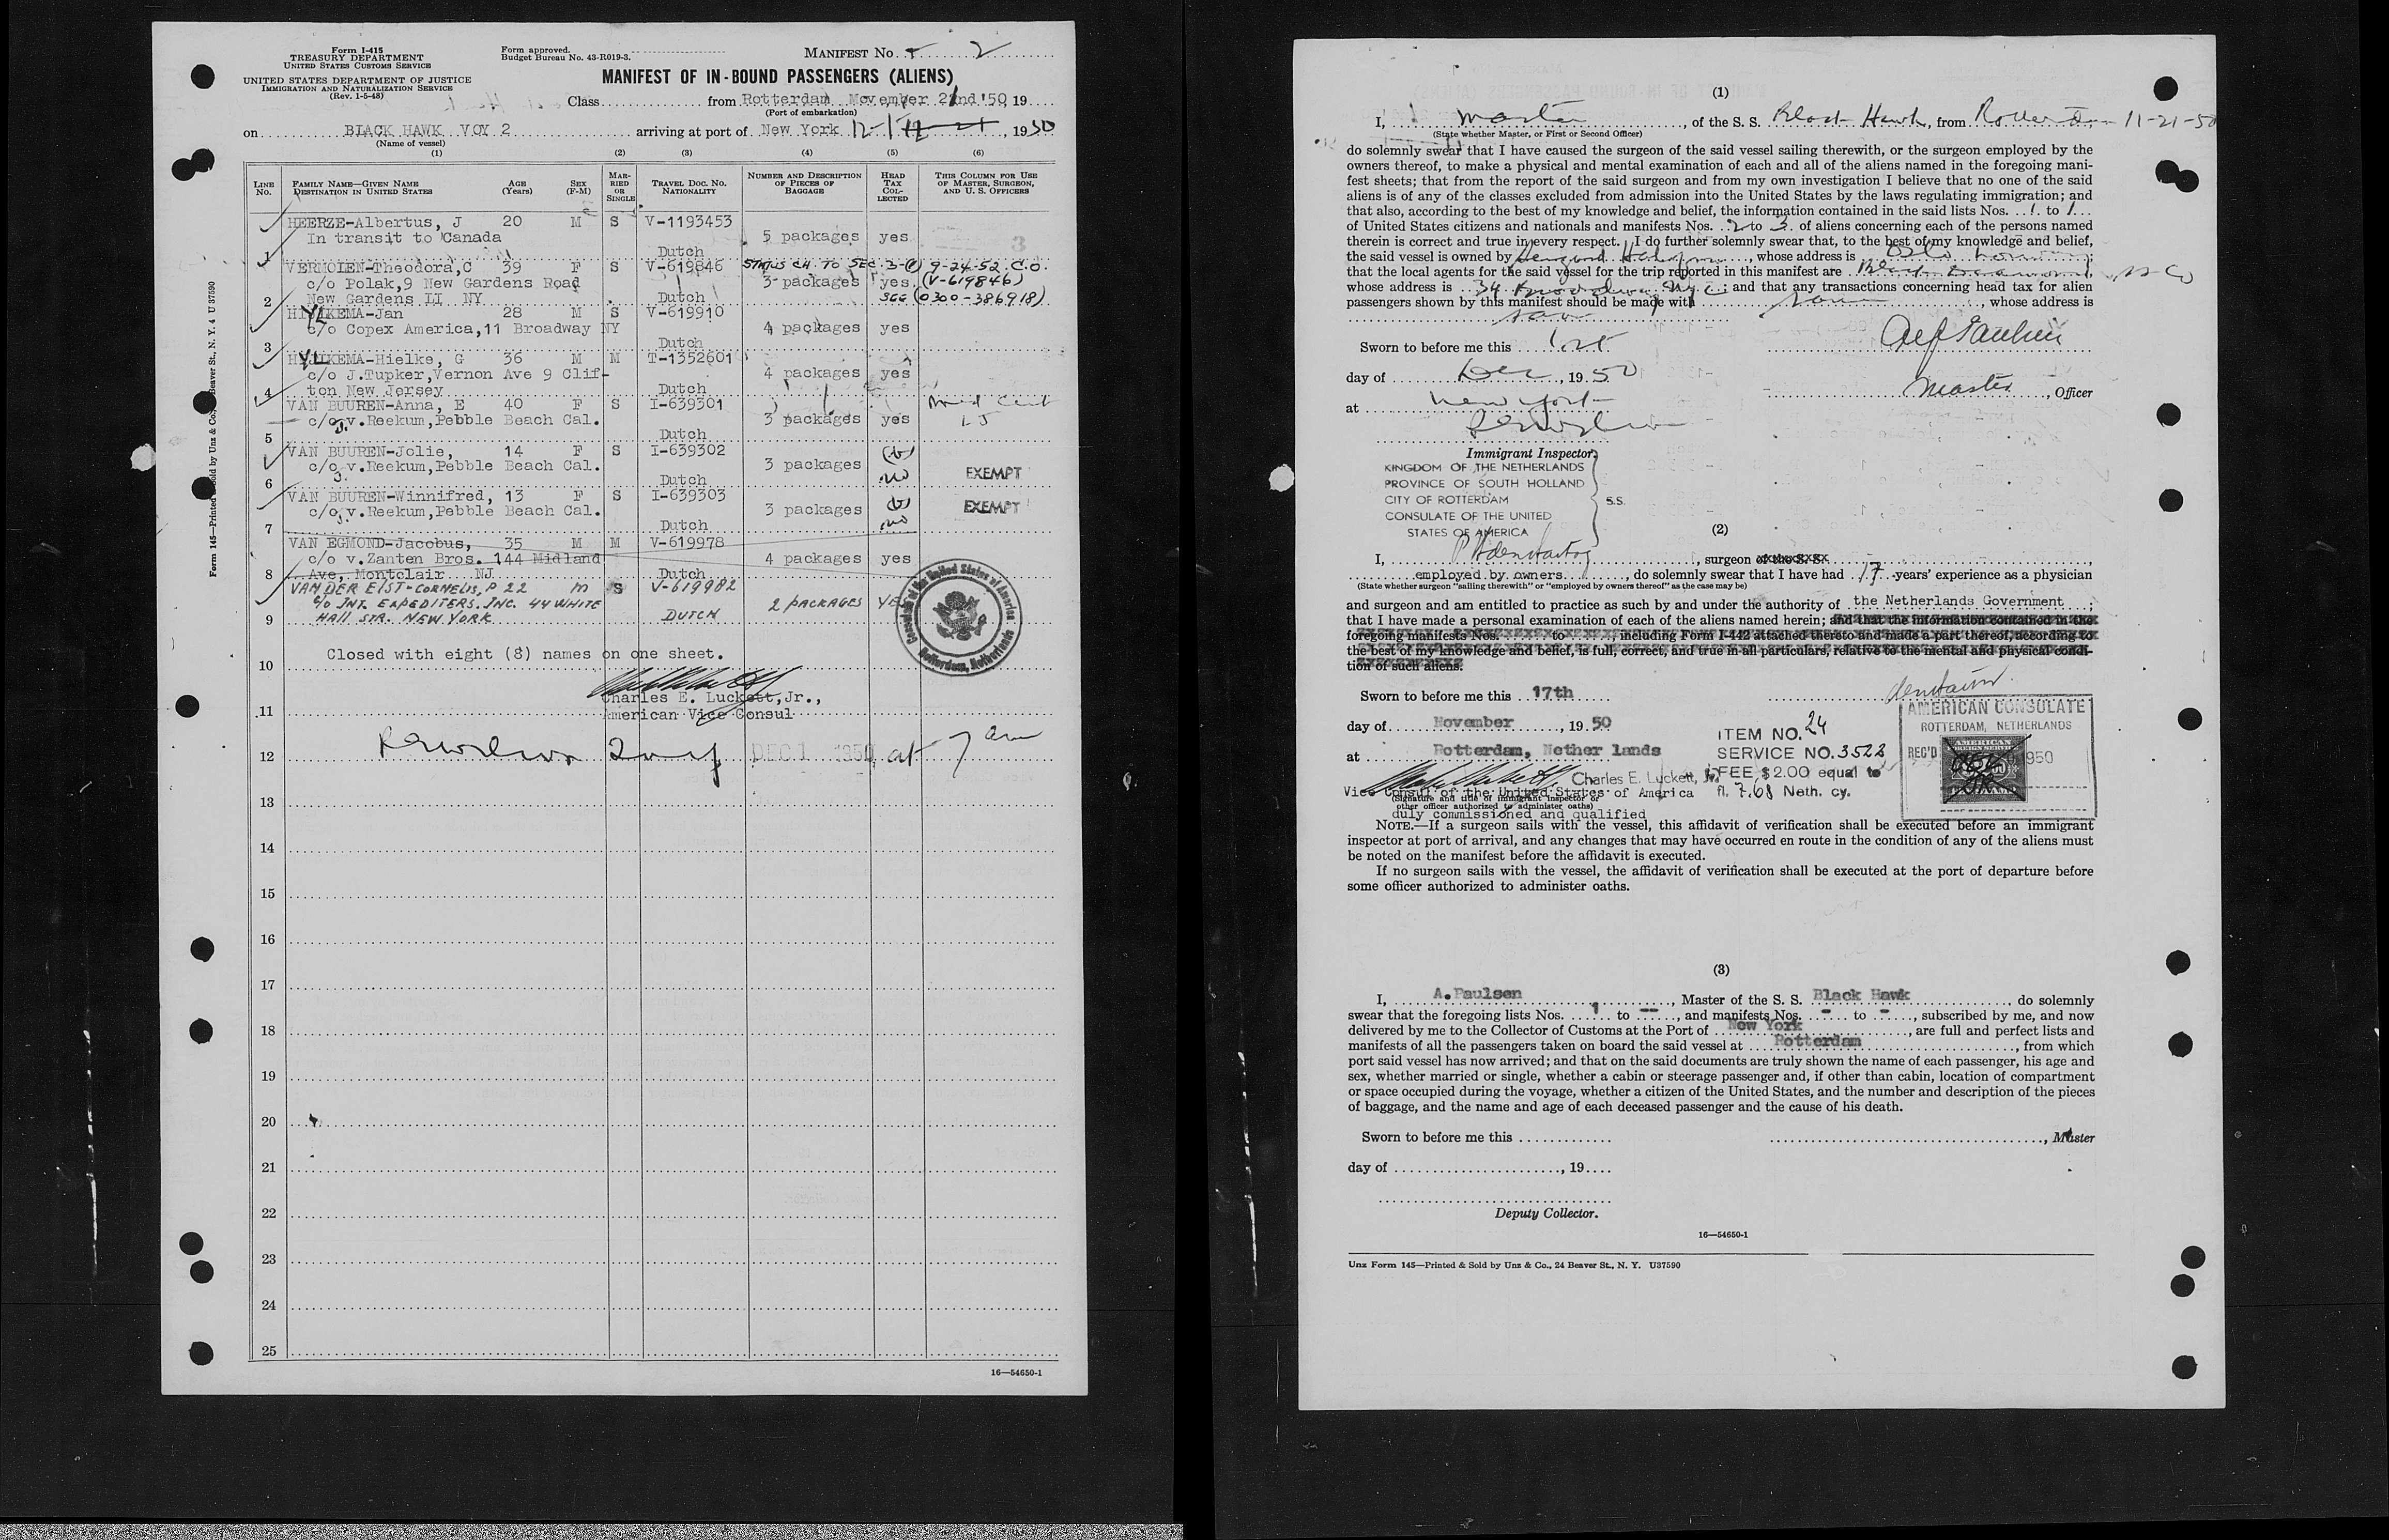 Form I-415
TREASURY DEPARTMENT
UNITED STATES CUSTOMS SERVICE
UNITED STATES DEPARTMENT OF JUSTICE
IMMIGRATION AND NATURALIZATION SERVICE
(Rev. 1-5-48)
Form approved.
Budget Bureau No. 43-R019-3.
MANIFEST No. 2
MANIFEST OF IN-BOUND PASSENGERS (ALIENS)
Class from Rotterdam November 21nd '50, 19
(Port of embarkation)
on BLACK HAWK VOY 2 arriving at port of New York 12-1, 1950
(Name of vessel)
(1) (2) (3) (4) (5) (6)
LINE No. FAMILY NAME—GIVEN NAME DESTINATION IN UNITED STATES AGE (Years) SEX (F-M) MARRIED OR SINGLE TRAVEL DOC. NO. NATIONALITY NUMBER AND DESCRIPTION OF PIECES OF BAGGAGE HEAD TAX COLLECTED THIS COLUMN FOR USE OF MASTER, SURGEON, AND U. S. OFFICERS
HEERZE-Albertus, J 20 M S V-1193453
In transit to Canada 5 packages yes
1 Dutch
VERMOIEN-Theodora,C 39 F S V-619846 STATUS CH. TO SEC. 3-(1) 9-24-52. C.O.
c/o Polak,9 New Gardens Road 3 packages yes. (V-619846)
2 New Gardens LI NY Dutch (0300-386918)
HYLKEMA-Jan 28 M S V-619910
c/o Copex America,11 Broadway NY 4 packages yes
3 Dutch
HYLKEMA-Hielke, G 36 M M T-1352601
c/o J.Tupker,Vernon Ave 9 Clif- 4 packages yes
4 ton New Jersey Dutch
VAN BUUREN-Anna, E 40 F S I-639301 Med Cert
c/o J.v.Reekum,Pebble Beach Cal. 3 packages yes
5 Dutch
VAN BUUREN-Jolie, 14 F S I-639302
c/o J.v.Reekum,Pebble Beach Cal. 3 packages
6 Dutch no EXEMPT
VAN BUUREN-Winnifred, 13 F S I-639303
c/o J.v.Reekum,Pebble Beach Cal. 3 packages EXEMPT
7 Dutch no
VAN EGMOND-Jacobus, 35 M M V-619978
c/o v.Zanten Bros. 144 Midland 4 packages yes
8 Ave, Montclair NJ Dutch
VAN DER ELST-CORNELIS, P 22 M S V-619982
c/o INT. EXPEDITERS. INC. 44 WHITE 2 PACKAGES YES
9 HALL STR. NEW YORK DUTCH
Consulate of the United States of America
Rotterdam, Netherlands
Closed with eight (8) names on one sheet.
10
Charles E. Luckett,Jr.,
11 American Vice Consul
12 DEC 1 1950 at 7 am
13
14
15
16
17
18
19
20
21
22
23
24
25
16—54650-1
Form 145—Printed & Sold by Unz & Co., 24 Beaver St., N. Y. 4 U 37590
(1)
I, Master, of the S. S. Black Hawk, from Rotterdam 11-21-50
(State whether Master, or First or Second Officer)
do solemnly swear that I have caused the surgeon of the said vessel sailing therewith, or the surgeon employed by the
owners thereof, to make a physical and mental examination of each and all of the aliens named in the foregoing mani-
fest sheets; that from the report of the said surgeon and from my own investigation I believe that no one of the said
aliens is of any of the classes excluded from admission into the United States by the laws regulating immigration; and
that also, according to the best of my knowledge and belief, the information contained in the said lists Nos. 1 to 1
of United States citizens and nationals and manifests Nos. 2 to 3 of aliens concerning each of the persons named
therein is correct and true in every respect. I do further solemnly swear that, to the best of my knowledge and belief,
the said vessel is owned by , whose address is Oslo Norway;
that the local agents for the said vessel for the trip reported in this manifest are
whose address is N.Y.C.; and that any transactions concerning head tax for alien
passengers shown by this manifest should be made with same, whose address is
same
Sworn to before me this 1st
day of Dec, 1950
Master, Officer
at New York
Immigrant Inspector.
KINGDOM OF THE NETHERLANDS
PROVINCE OF SOUTH HOLLAND
CITY OF ROTTERDAM S.S.
CONSULATE OF THE UNITED
STATES OF AMERICA
(2)
I, , surgeon of the S. S.
employed by owners, do solemnly swear that I have had 17 years' experience as a physician
(State whether surgeon "sailing therewith" or "employed by owners thereof" as the case may be)
and surgeon and am entitled to practice as such by and under the authority of the Netherlands Government;
that I have made a personal examination of each of the aliens named herein; and that the information contained in the
foregoing manifests Nos. to , including Form I-442 attached thereto and made a part thereof, according to
the best of my knowledge and belief, is full, correct, and true in all particulars, relative to the mental and physical condi-
tion of such aliens.
Sworn to before me this 17th
day of November, 1950
at Rotterdam, Netherlands
Charles E. Luckett, Jr.
Vice Consul of the United States of America
(Signature and title of immigrant inspector or
other officer authorized to administer oaths)
duly commissioned and qualified
ITEM NO. 24
SERVICE NO. 3522
FEE $2.00 equal to
fl. 7.68 Neth. cy.
AMERICAN CONSULATE
ROTTERDAM, NETHERLANDS
REC'D 1950
AMERICAN
FOREIGN SERVICE
NOTE.—If a surgeon sails with the vessel, this affidavit of verification shall be executed before an immigrant
inspector at port of arrival, and any changes that may have occurred en route in the condition of any of the aliens must
be noted on the manifest before the affidavit is executed.
If no surgeon sails with the vessel, the affidavit of verification shall be executed at the port of departure before
some officer authorized to administer oaths.
(3)
I, A.Paulsen, Master of the S. S. Black Hawk, do solemnly
swear that the foregoing lists Nos. 1 to --, and manifests Nos. - to -, subscribed by me, and now
delivered by me to the Collector of Customs at the Port of New York, are full and perfect lists and
manifests of all the passengers taken on board the said vessel at Rotterdam, from which
port said vessel has now arrived; and that on the said documents are truly shown the name of each passenger, his age and
sex, whether married or single, whether a cabin or steerage passenger and, if other than cabin, location of compartment
or space occupied during the voyage, whether a citizen of the United States, and the number and description of the pieces
of baggage, and the name and age of each deceased passenger and the cause of his death.
Sworn to before me this
, Master
day of , 19
Deputy Collector.
16—54650-1
Unz Form 145—Printed & Sold by Unz & Co., 24 Beaver St., N. Y. U37590